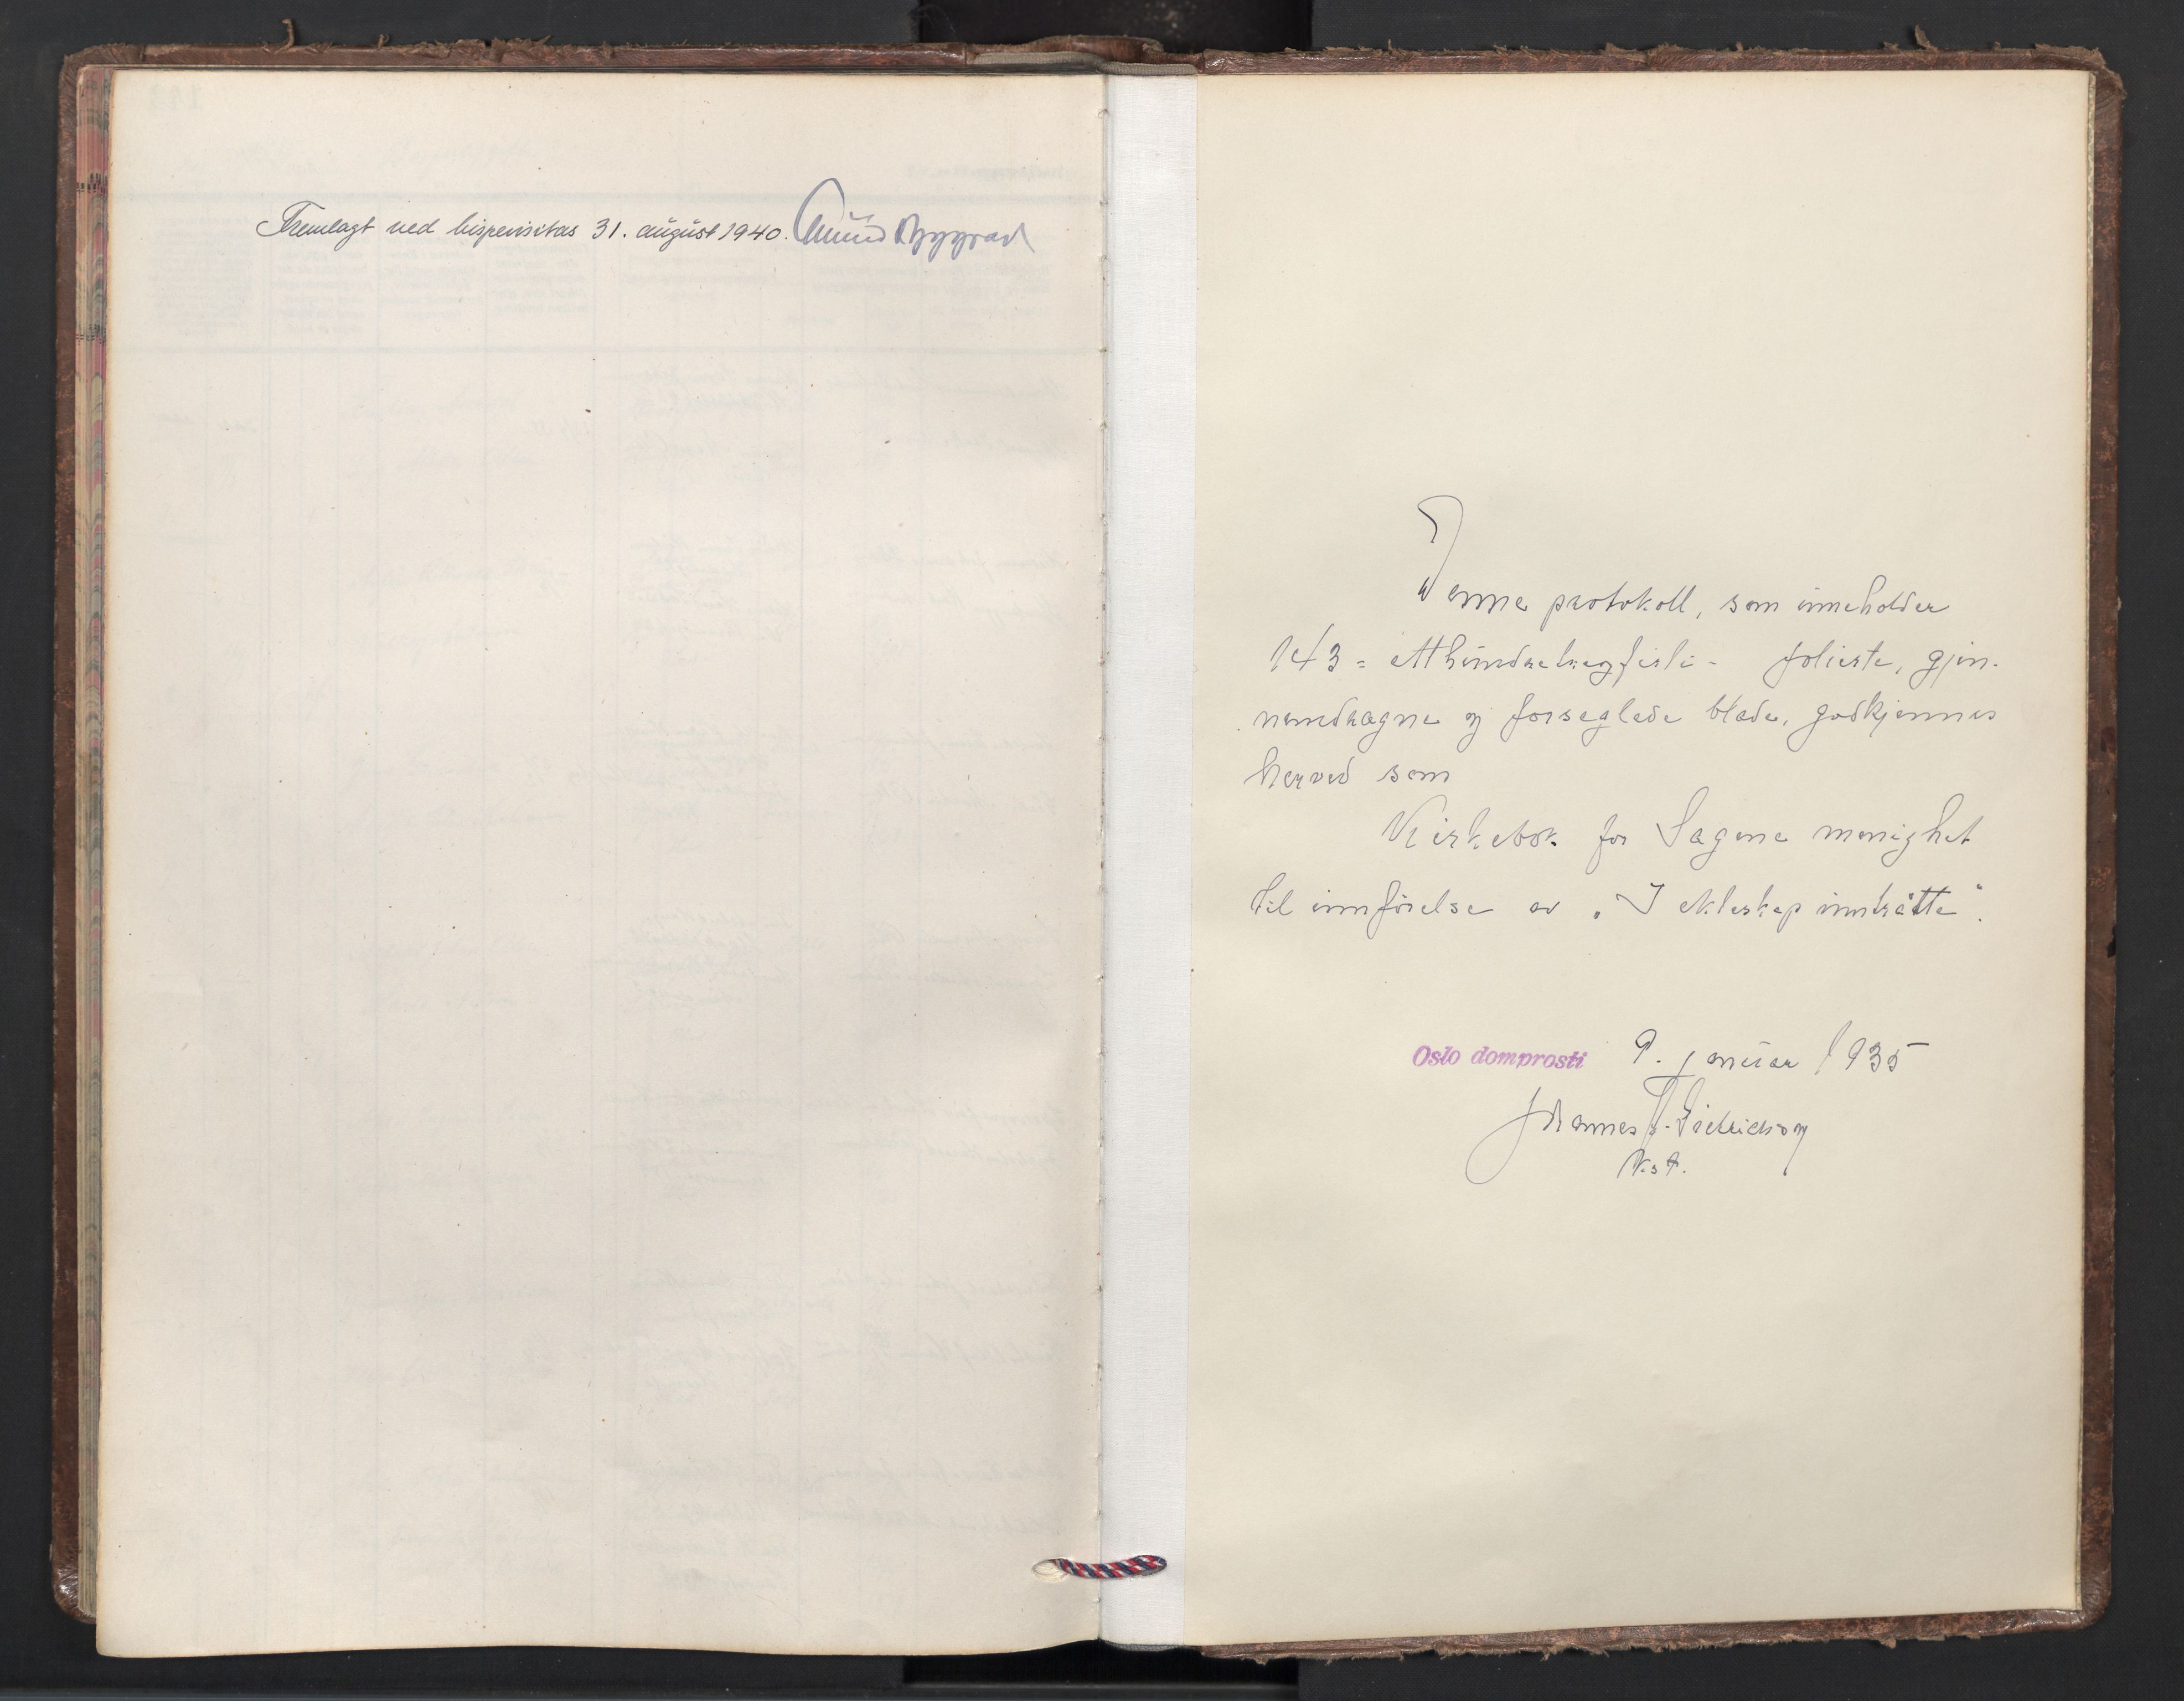 Fremlagt ved bispevisitas 31. august 1940.
Denne protokoll, som inneholder
143 = etthundreogførti - folierte, gjen-
nemdragne og forseglede blade, godkjennes
herved som
Kirkebok for Sagene menighet
til innførelse av „I ekteskap inntrådte".
Oslo domprosti 9. januar 1935
Johannes Dietrichson
kst.